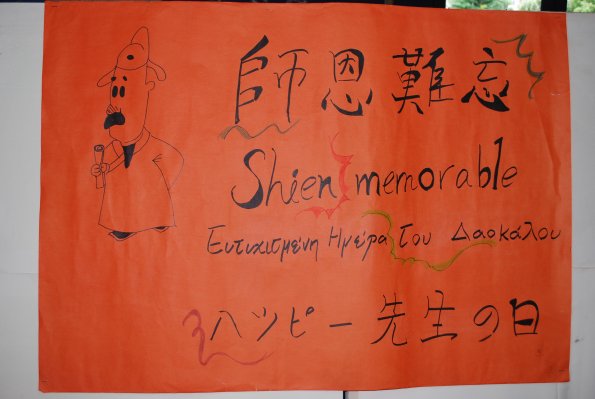 師恩難忘
Shien memorable
Ευτυχισμένη Ημέρα Του Δασκάλου
ハッピー先生の日